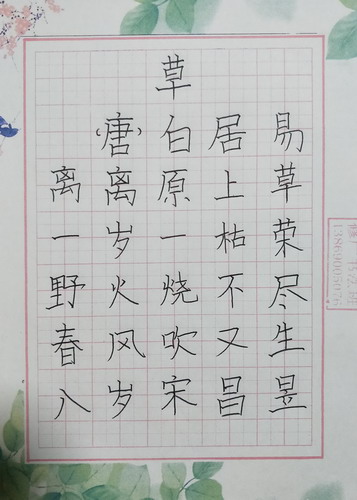 草
(唐)白居易
离离原上草
一岁一枯荣
野火烧不尽
春风吹又生
八岁宋昌昱